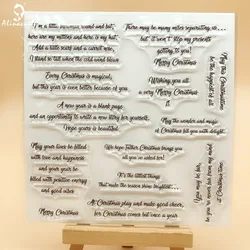 I'm a little snowman round and fat,
here are my mittens and here is my hat.
Add a little scarf and a carrot nose
I stand so tall when the cold wind blows
There may be many miles separating us...
but it won't stop my present
getting to you!
Merry Christmas
Every Christmas is magical,
but this year is even better because of you
Wishing you all
a very Merry Christmas
May this Christmas
be the happiest of all
A new year is a blank page
and an opportunity to write a new story for yourself.
Hope yours is beautiful
May the wonder and magic
of Christmas fill you with delight.
May your stove be filled
with love and happiness
and your year be
filled with positive energy
and good vibes
Merry Christmas
We hope Father Christmas brings
all you've asked for!
It's the littlest things
that make the season shine brightest...
At Christmas play and make good cheer,
for Christmas comes but once a year
You may be far,
but you're never far from my mind
at Christmas